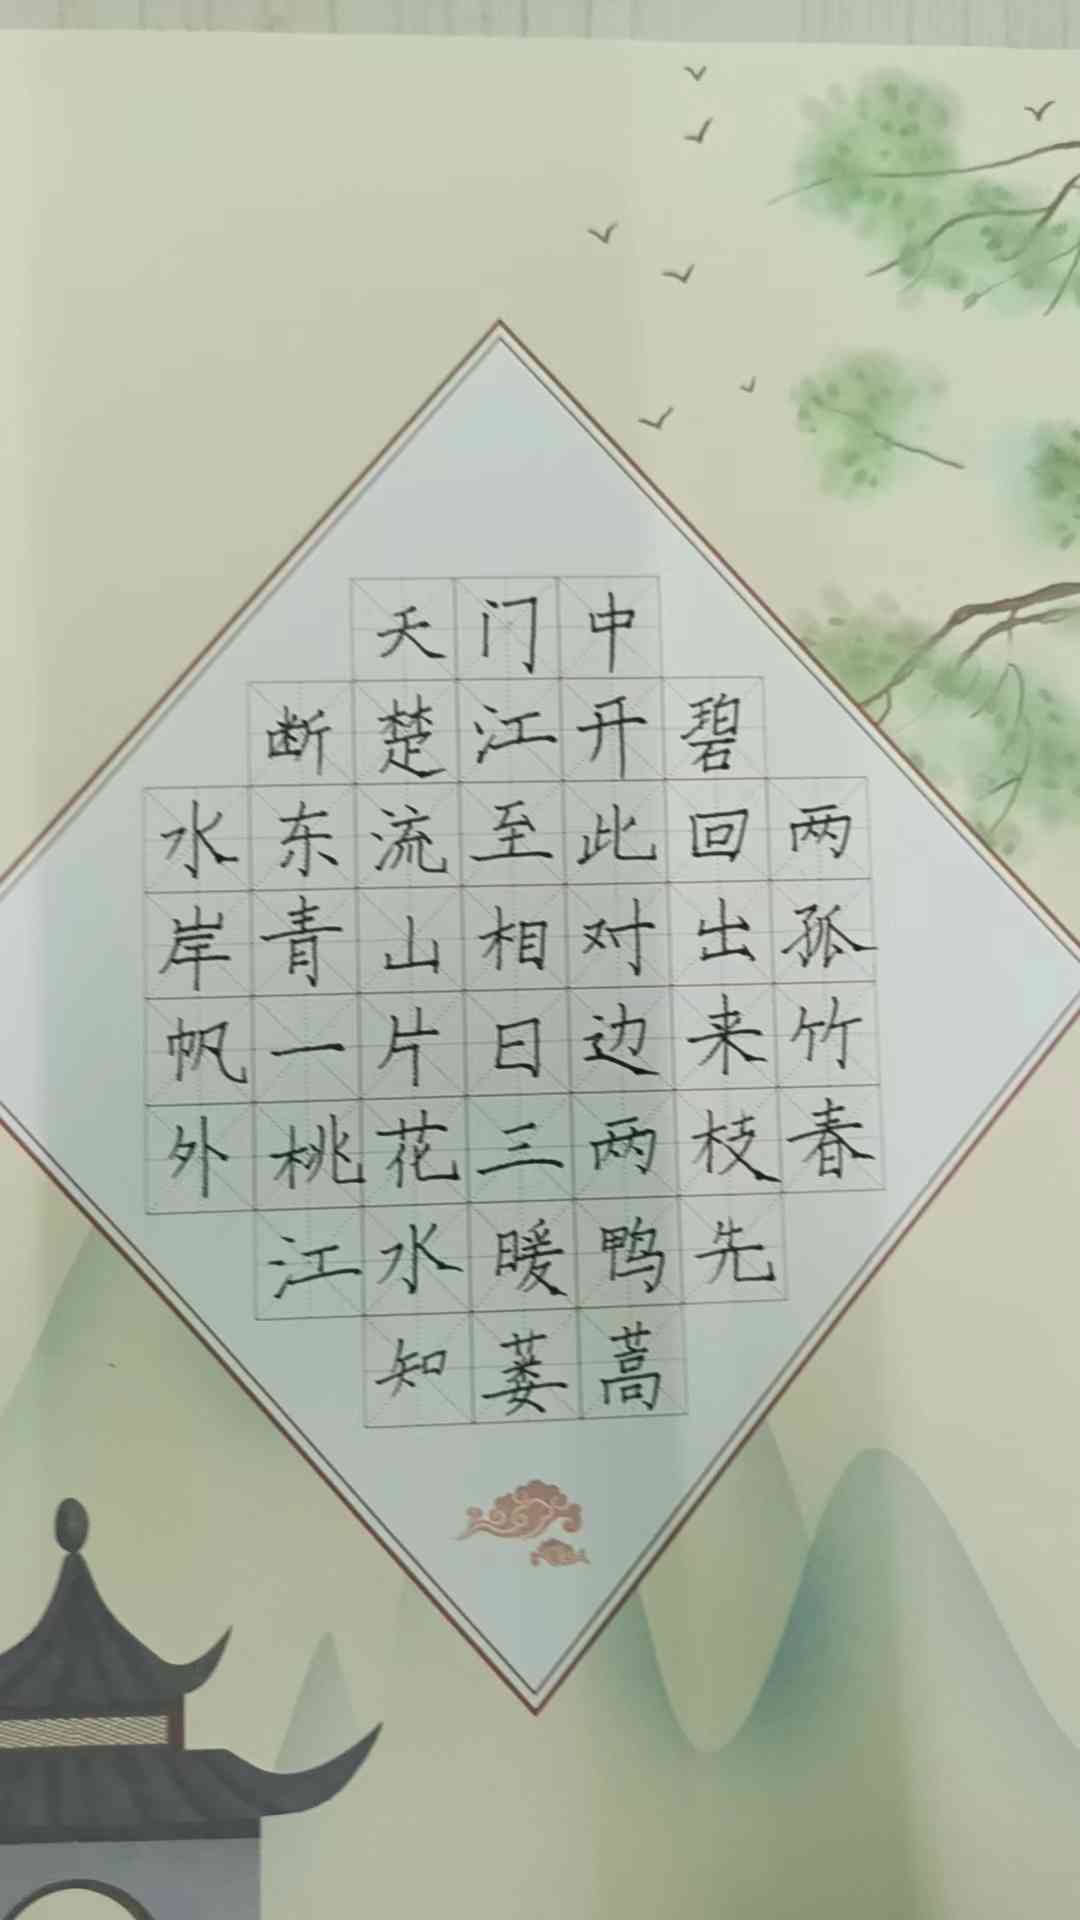 天门中
断楚江开碧
水东流至此回两
岸青山相对出孤
帆一片日边来竹
外桃花三两枝春
江水暖鸭先
知蒌蒿